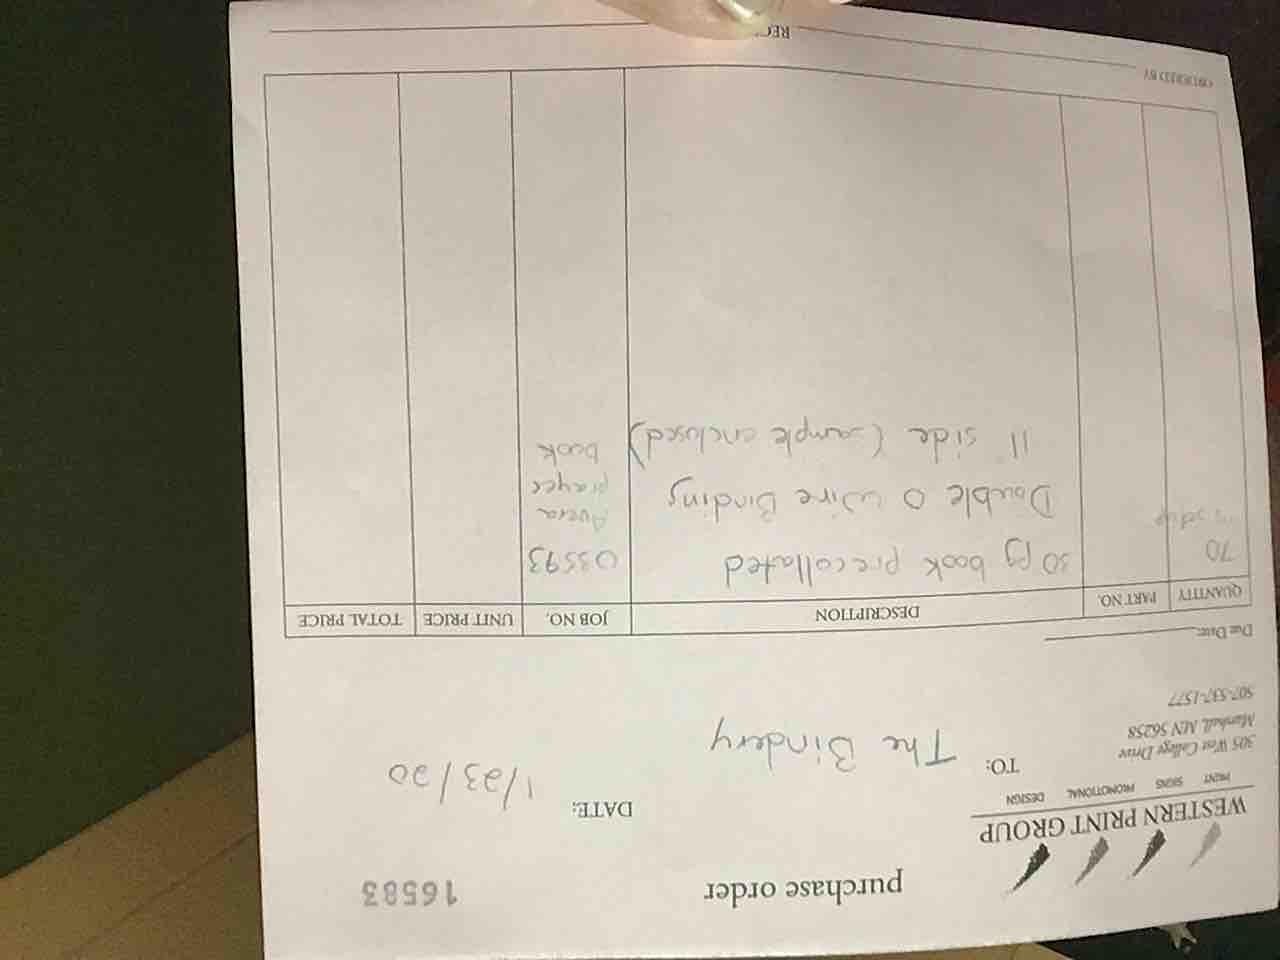 purchase order
16583
WESTERN PRINT GROUP
PRINT SIGNS PROMOTIONAL DESIGN
305 West College Drive
Marshall, MN 56258
507-537-1577
DATE: 1/23/20
TO: The Bindery
Due Date:
QUANTITY PART NO. DESCRIPTION JOB NO. UNIT PRICE TOTAL PRICE
70 50 pg book precollated 03593
Double O Wire Binding Avera
prayer
11 side (sample enclosed) book
ORDERED BY